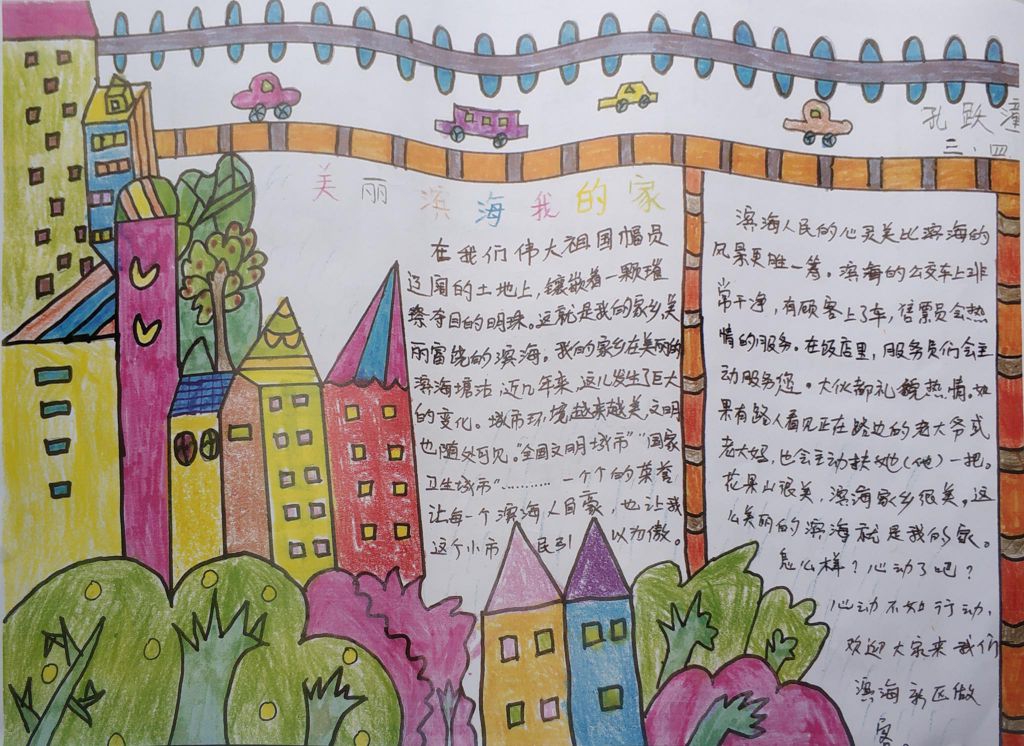 孔跃潼
三、四
美丽滨海我的家
在我们伟大祖国幅员
辽阔的土地上,镶嵌着一颗璀
璨夺目的明珠。这就是我的家乡,美
丽富饶的滨海。我的家乡在美丽的
滨海塘沽,近几年来,这儿发生了巨大
的变化。城市环境越来越美,文明
也随处可见。"全国文明城市""国家
卫生城市"………一个个的荣誉
让每一个滨海人自豪,也让我
这个小市民引以为傲。
滨海人民的心灵美比滨海的
风景更胜一筹。滨海的公交车上非
常干净,有顾客上了车,售票员会热
情的服务。在饭店里,服务员们会主
动服务您。大伙都礼貌热情。如
果有路人看见正在路边的老大爷或
老大妈,也会主动扶她(他)一把。
花果山很美,滨海家乡很美。这
么美丽的滨海就是我的家。
怎么样?心动了吧?
心动不如行动,
欢迎大家来我们
滨海新区做
客。